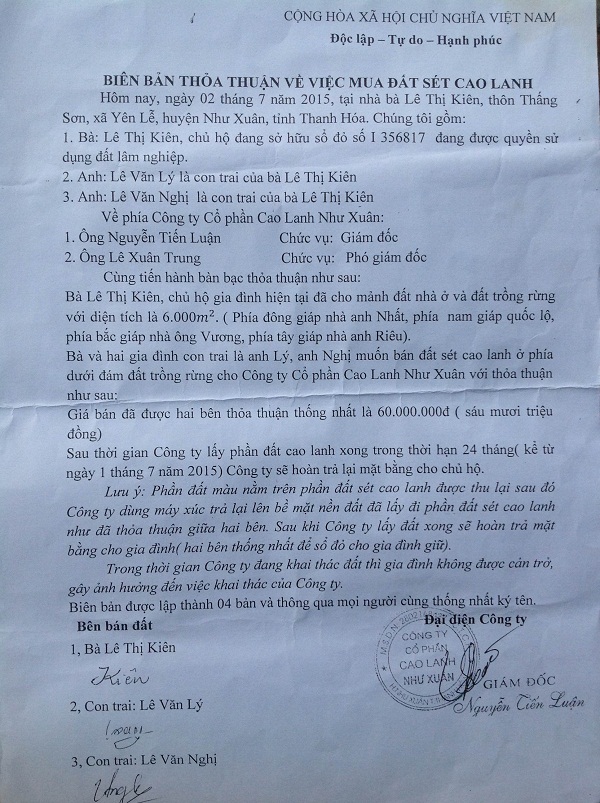 CỘNG HÒA XÃ HỘI CHỦ NGHĨA VIỆT NAM
Độc lập – Tự do – Hạnh phúc
BIÊN BẢN THỎA THUẬN VỀ VIỆC MUA ĐẤT SÉT CAO LANH
Hôm nay, ngày 02 tháng 7 năm 2015, tại nhà bà Lê Thị Kiên, thôn Thấng
Sơn, xã Yên Lễ, huyện Như Xuân, tỉnh Thanh Hóa. Chúng tôi gồm:
1. Bà: Lê Thị Kiên, chủ hộ đang sở hữu sổ đỏ số I 356817 đang được quyền sử
dụng đất lâm nghiệp.
2. Anh: Lê Văn Lý là con trai của bà Lê Thị Kiên
3. Anh: Lê Văn Nghị là con trai của bà Lê Thị Kiên
Về phía Công ty Cổ phần Cao Lanh Như Xuân:
1. Ông Nguyễn Tiến Luận Chức vụ: Giám đốc
2. Ông Lê Xuân Trung Chức vụ: Phó giám đốc
Cùng tiến hành bàn bạc thỏa thuận như sau:
Bà Lê Thị Kiên, chủ hộ gia đình hiện tại đã cho mảnh đất nhà ở và đất trồng rừng
với diện tích là 6.000m². ( Phía đông giáp nhà anh Nhất, phía nam giáp quốc lộ,
phía bắc giáp nhà ông Vương, phía tây giáp nhà anh Riêu).
Bà và hai gia đình con trai là anh Lý, anh Nghị muốn bán đất sét cao lanh ở phía
dưới đám đất trồng rừng cho Công ty Cổ phần Cao Lanh Như Xuân với thỏa thuận
như sau:
Giá bán đã được hai bên thỏa thuận thống nhất là 60.000.000đ ( sáu mươi triệu
đồng)
Sau thời gian Công ty lấy phần đất cao lanh xong trong thời hạn 24 tháng( kể từ
ngày 1 tháng 7 năm 2015) Công ty sẽ hoàn trả lại mặt bằng cho chủ hộ.
Lưu ý: Phần đất màu nằm trên phần đất sét cao lanh được thu lại sau đó
Công ty dùng máy xúc trả lại lên bề mặt nền đất đã lấy đi phần đất sét cao lanh
như đã thỏa thuận giữa hai bên. Sau khi Công ty lấy đất xong sẽ hoàn trả mặt
bằng cho gia đình( hai bên thống nhất để sổ đỏ cho gia đình giữ).
Trong thời gian Công ty đang khai thác đất thì gia đình không được cản trở,
gây ảnh hưởng đến việc khai thác của Công ty.
Biên bản được lập thành 04 bản và thông qua mọi người cùng thống nhất ký tên.
Bên bán đất Đại diện Công ty
1, Bà Lê Thị Kiên
Kiên
CÔNG TY
CỔ PHẦN
CAO LANH
NHƯ XUÂN
GIÁM ĐỐC
Nguyễn Tiến Luận
2, Con trai: Lê Văn Lý
3, Con trai: Lê Văn Nghị